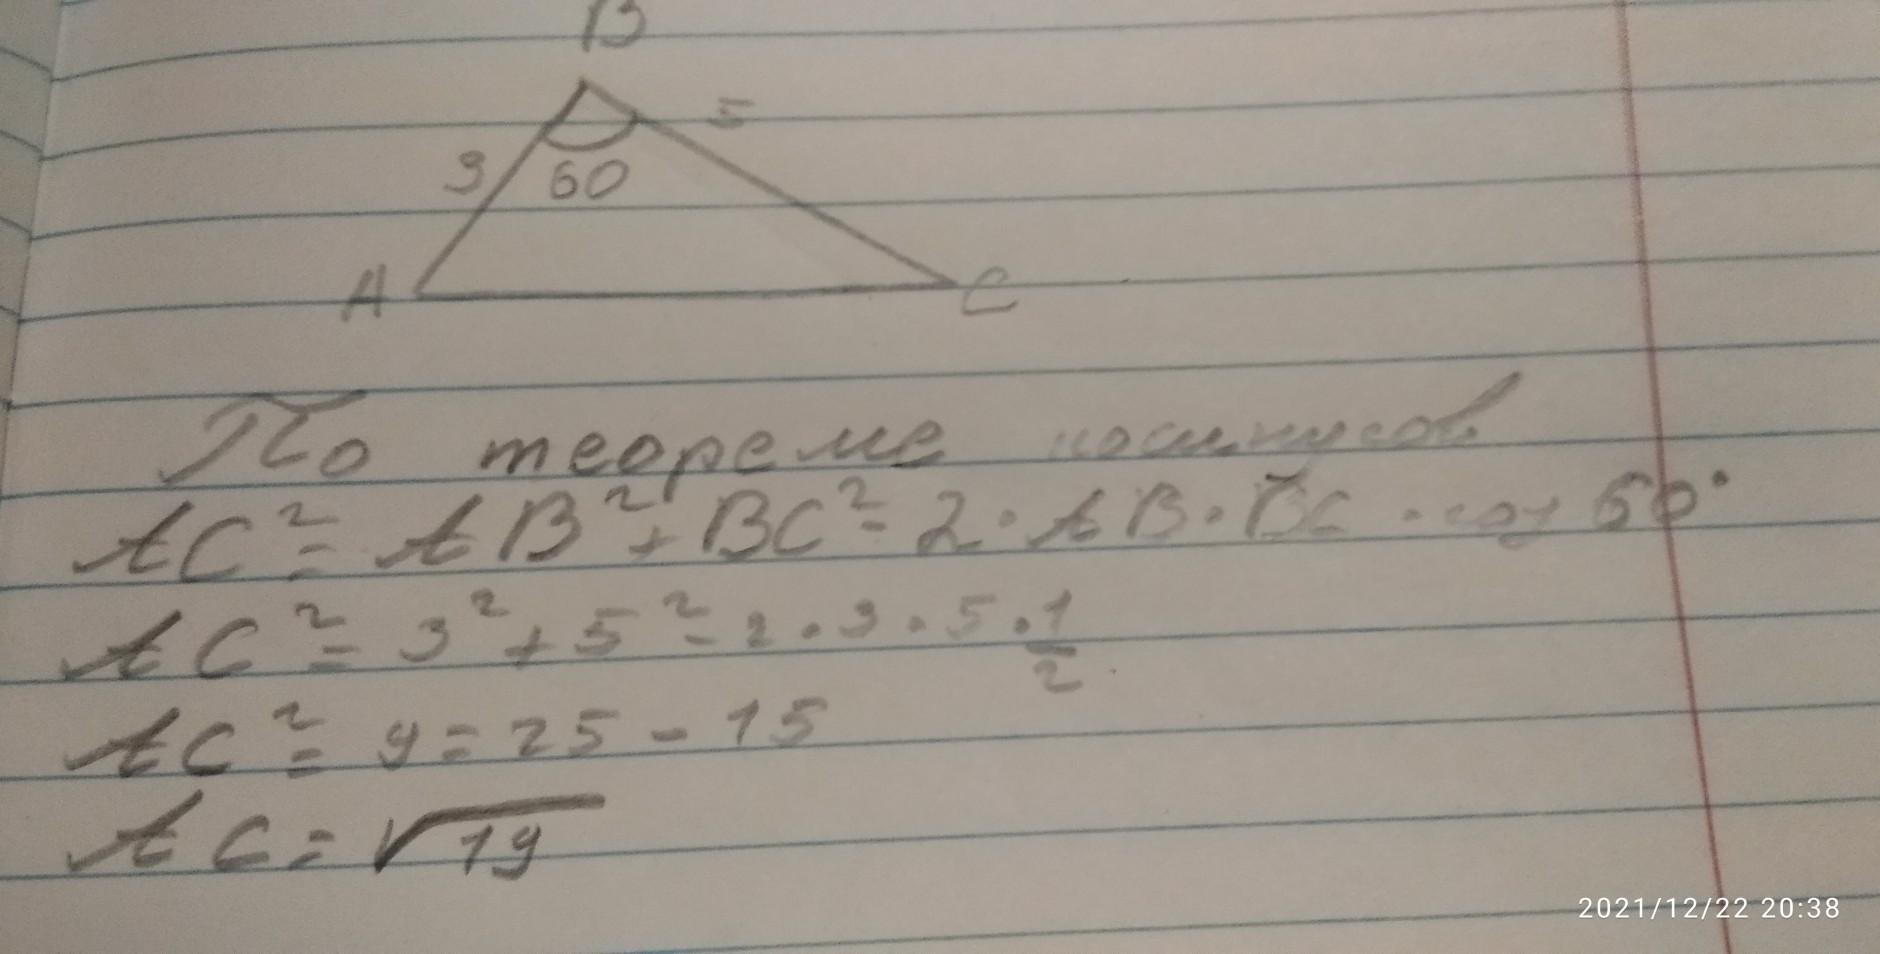 В
3 60 5
А С
По теореме косинусов
AC² = AB² + BC² - 2 · AB · BC · cos 60°
AC² = 3² + 5² - 2 · 3 · 5 · 1/2
AC² = 9 = 25 - 15
AC = √19
2021/12/22 20:38